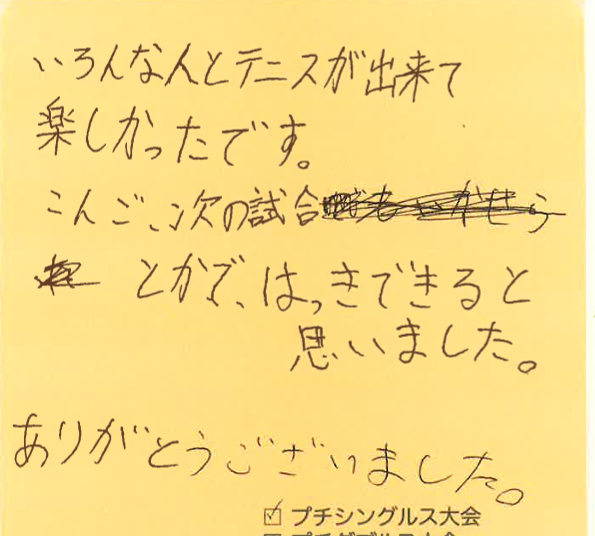 いろんな人とテニスが出来て
楽しかったです。
こんご、次の試合
とかで、はっきできると
思いました。
ありがとうございました。
☑ プチシングルス大会